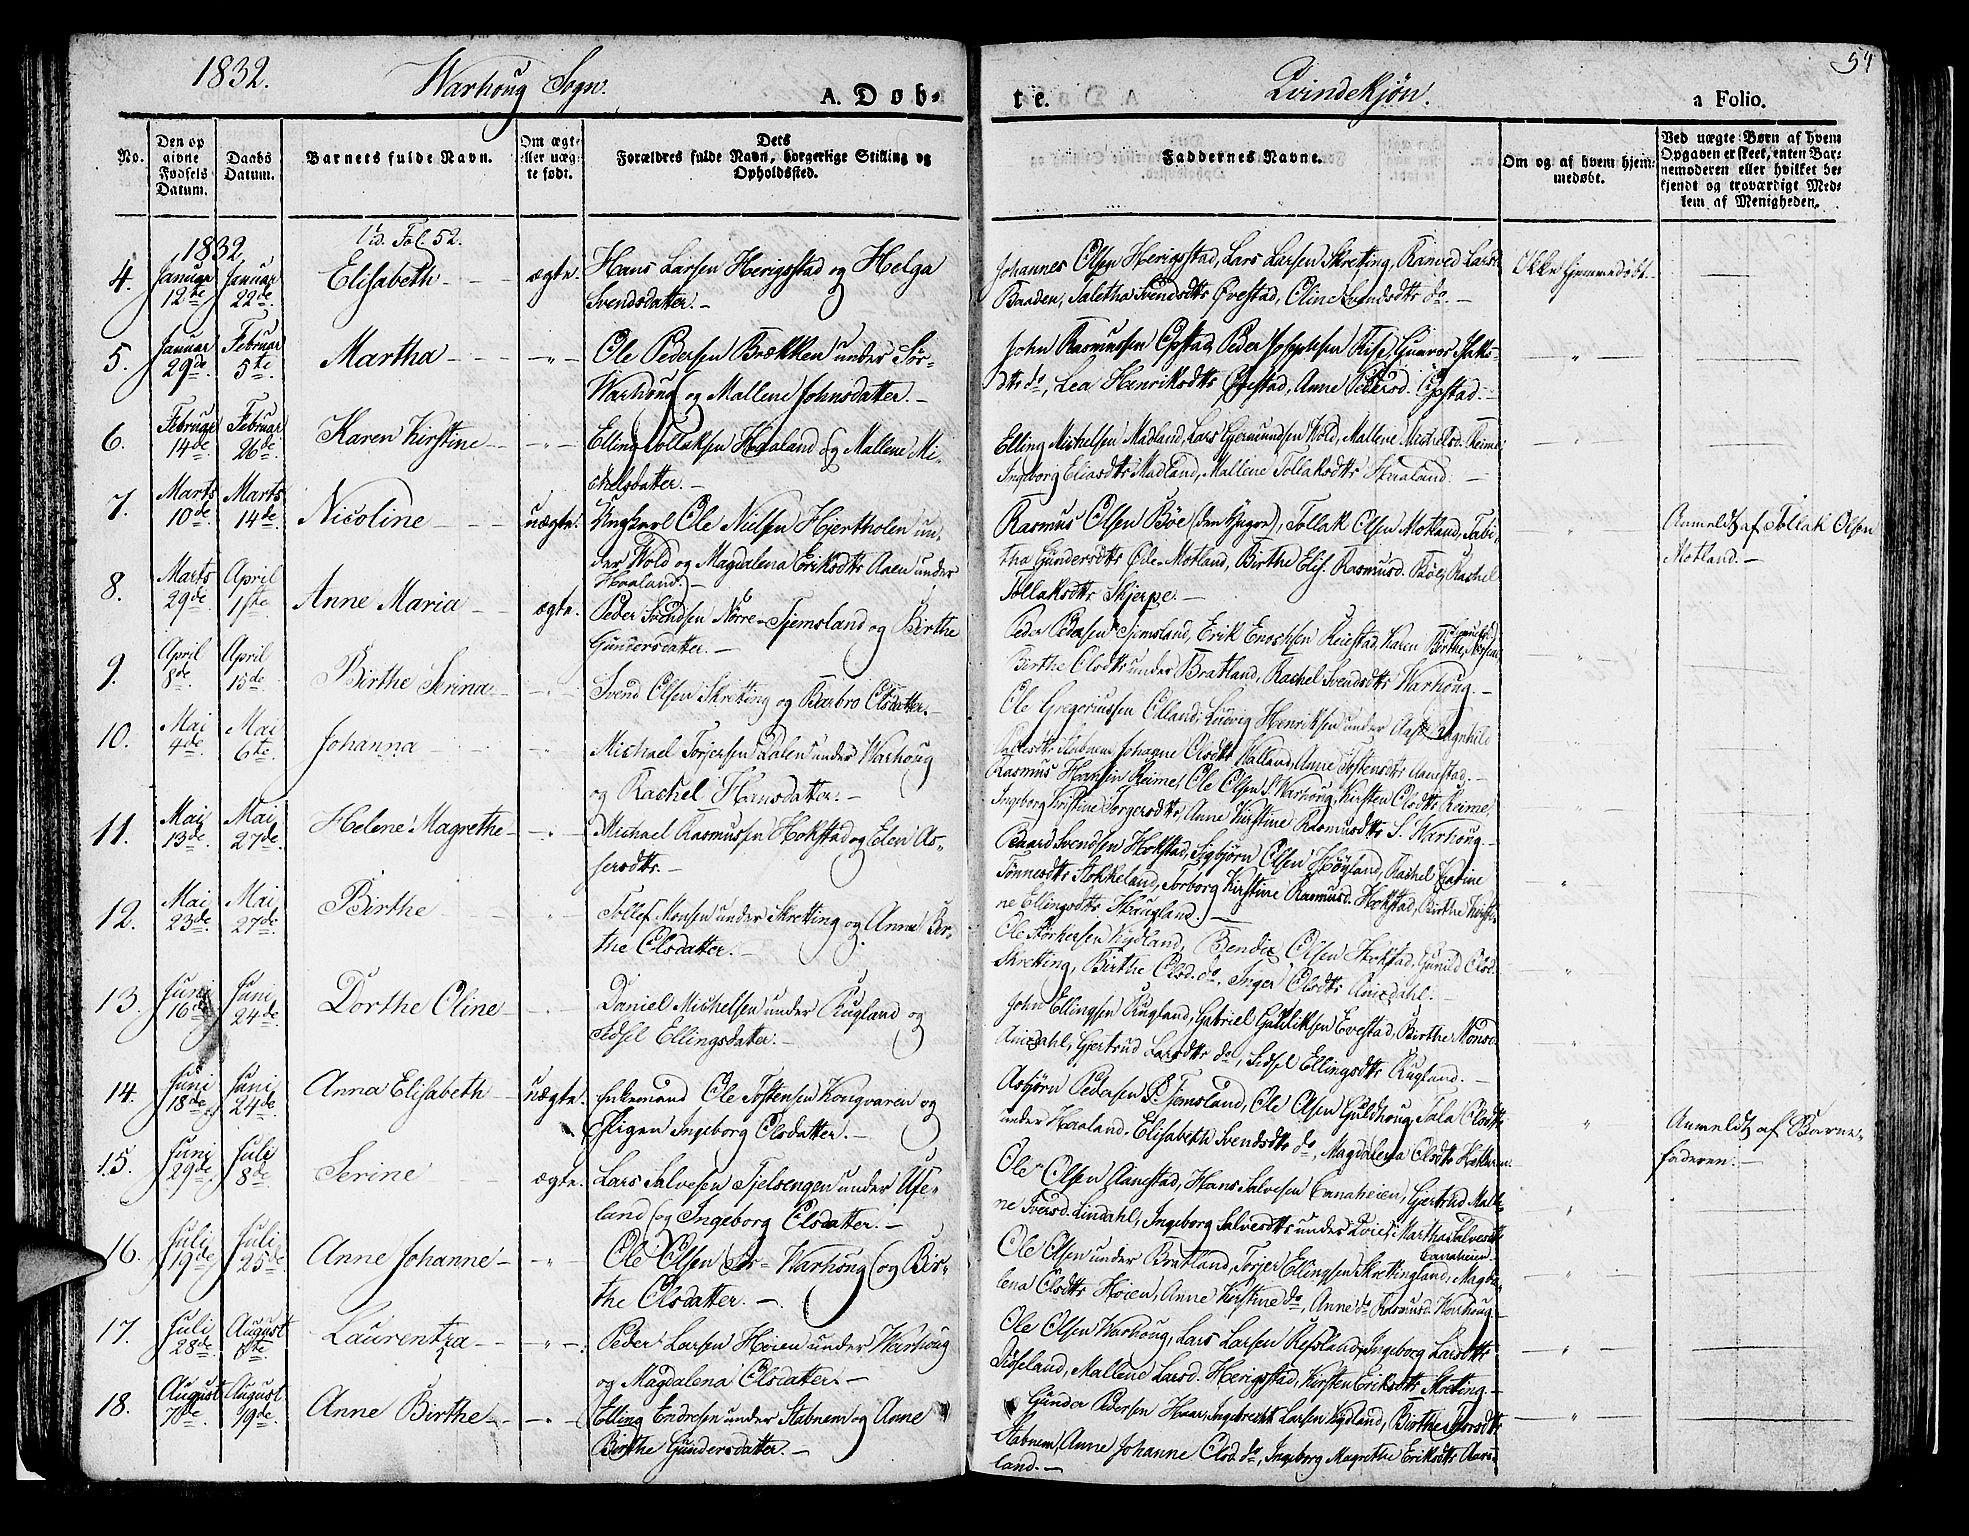 1832. Warhoug Sogn. A. Døb-
te. Qvindekjøn. a Folio. 54
No.
Den op
givne
Fødsels
Datum.
Daabs
Datum.
Barnets fulde Navn.
Om ægte
eller uæg-
te født.
Dets
Forældres fulde Navn, borgerlige Stilling og
Opholdssted.
Faddernes Navne.
Om og af hvem hjem-
medøbt.
Ved uægte Børn af hvem
Opgaven er skeet, enten Bar-
nemoderen eller hvilket be-
kjendt og troværdigt Med-
lem af Menigheden.
1832 Vid. Fol. 52.
4. Januar 12te Januar 22de Elisabeth ægte. Hans Larsen Herigstad og Helga
Svendsdatter.
Johannes Olsen Herigstad, Lars Larsen Skretting, Ranved Lars
Baaden, Taletha Svendsdttr Øvestad, Oline Svendsdttr do.
Ikke hjemmedøbt.
5. Januar 29de Februar 5te Martha " Ole Pedersen Brækken under Sør-
Warhoug og Mallene Johnsdatter.
John Rasmussen Opstad, Peder Josephsen Rise, Gunvor Isaks-
dttr do, Lea Henriksdttr Øvestad, Anne Pedersd. Opstad.
6. Februar 14de Februar 26de Karen Kirstine " Elling Tollaksen Haaland og Mallene Mi-
chelsdatter.
Elling Michelsen Madland, Lars Gjermundsen Wold, Mallene Michelsd. Reime
Ingeborg Eliasdttr Madland, Mallene Tollaksdttr Haaland.
7. Marts 10de Marts 14de Nicoline uægte. Ungkarl Ole Nielsen Hjertholen un-
der Wold og Magdalena Eriksdttr Aaen under
Haaland.
Rasmus Olsen Böe (den yngre), Tollak Olsen Motland, Tabi-
tha Gundersdttr Øde-Motland, Birthe Elis. Rasmusd. Böe, Rachel
Tollaksdttr Skjerpe.
Anmeldt af Tollak Olsen
Motland.
8. Marts 29de April 1ste Anne Maria ægte. Peder Svendsen Nörre-Tjemsland og Birthe
Gundersdatter.
Peder Pedersen Tjemsland, Erik Enochsen Reiestad, Karen Birthe
Birthe Olsdttr under Bratland, Rachel Svendsdttr Warhoug.
9. April 8de April 15de Birthe Serina " Svend Olsen Skretting og Barbro Olsdatter.
Ole Gregeriussen Odland, Ludvig Henriksen under Aase, Ragnhild
Stabnem, Johanne Olsdttr Walland, Anne Tostensdttr Aanestad.
10. Mai 4de Mai 6te Johanna " Michael Torjersen Dalen under Warhoug
og Rachel Hansdatter.
Rasmus Hansen Reime, Ole Olsen S. Warhoug, Kirsten Olsdttr Reime,
Ingeborg Kirstine Torgersdttr, Anne Kirstine Rasmusdttr S. Warhoug.
11. Mai 13de Mai 27de Helene Magrethe " Michael Rasmussen Hokstad og Elen As-
sersdttr.
Baard Svendsen Hokstad, Sigbjörn Olsen Höyland, Rachel Karine
Tönnesdttr Stokkeland, Torborg Kirstine Rasmusd. Hokstad, Birthe Kirsti-
ne Ellingsdttr Haugland.
12. Mai 23de Mai 27de Birthe " Tollef Monsen under Skretting og Anne Bir-
the Olsdatter.
Ole Torkersen Kydland, Bendix Olsen Hokstad, Gunild Olsd.
Skretting, Birthe Olsd. do, Inger Olsdttr Anixdahl.
13. Juni 16de Juni 24de Dorthe Oline " Daniel Michelsen under Rugland og
Sidsel Ellingsdatter.
John Ellingsen Rugland, Gabriel Evestad, Birthe Monsd
Anixdahl, Gjertrud Larsdttr do, Sidsel Ellingsdttr Rugland.
14. Juni 18de Juni 24de Anna Elisabeth uægte. Enkemand Ole Tostensen Kongvaren og
Pigen Ingeborg Olsdatter.
Asbjørn Pedersen S. Tjemsland, Ole Olsen Guldhoug, Tala Olsdttr
under Haaland, Elisabeth Svendsdttr do, Magdalena Olsdttr
Anmeldt af Barne-
faderen.
15. Juni 29de Juli 8de Serine ægte. Lars Salvesen Tjelsengen under Ase-
land og Ingeborg Olsdatter.
Ole Olsen Aanestad, Hans Salvesen Canaheien, Gjertrud Malle-
ne Iversd. Lindahl, Ingeborg Salvesdttr under Qvie, Martha Salvesdttr
Canaheien
16. Juli 19de Juli 25de Anne Johanne " Ole Olsen Sör-Warhoug og Bir-
the Olsdatter.
Ole Olsen under Bratland, Torjer Ellingsen Skrettingland, Magda-
lena Olsdttr Høien, Anne Kirstine do, Anne do Rasmusd. Warhoug.
17. Juli 28de August 5te Laurentza " Peder Larsen Høien under Warhoug
og Magdalena Olsdatter.
Ole Olsen Warhoug, Lars Larsen Refsland, Ingeborg Larsdttr
Mallene Larsd. Herigstad, Kirsten Eriksdttr Skretting.
18. August 7de August 19de Anne Birthe " Elling Endresen under Stabnem og Anne
Birthe Gundersdatter.
Gunder Pedersen Haar, Ingebreth Larsen Kydland, Birthe Iversdttr
Stabnem, Anne Johanne Olsd. do, Ingeborg Magrethe Eriksdttr Aars-
land.